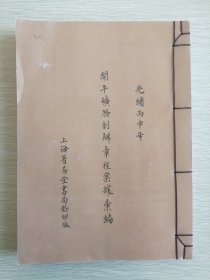 光緒丙申年
開平礦務創辦章程案據彙編
上海著易堂書局鉛印版